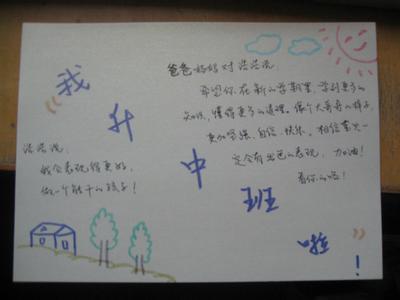 “我升中班啦”！
爸爸妈妈对浩浩说
希望你在新的学期里，学到更多的
知识，懂得更多的道理。像个大哥哥的样子，
更加坚强、自信、快乐，相信
定会有出色的表现，加油！
看你的啦！
浩浩说：
我会表现得更好，
做一个能干的孩子！